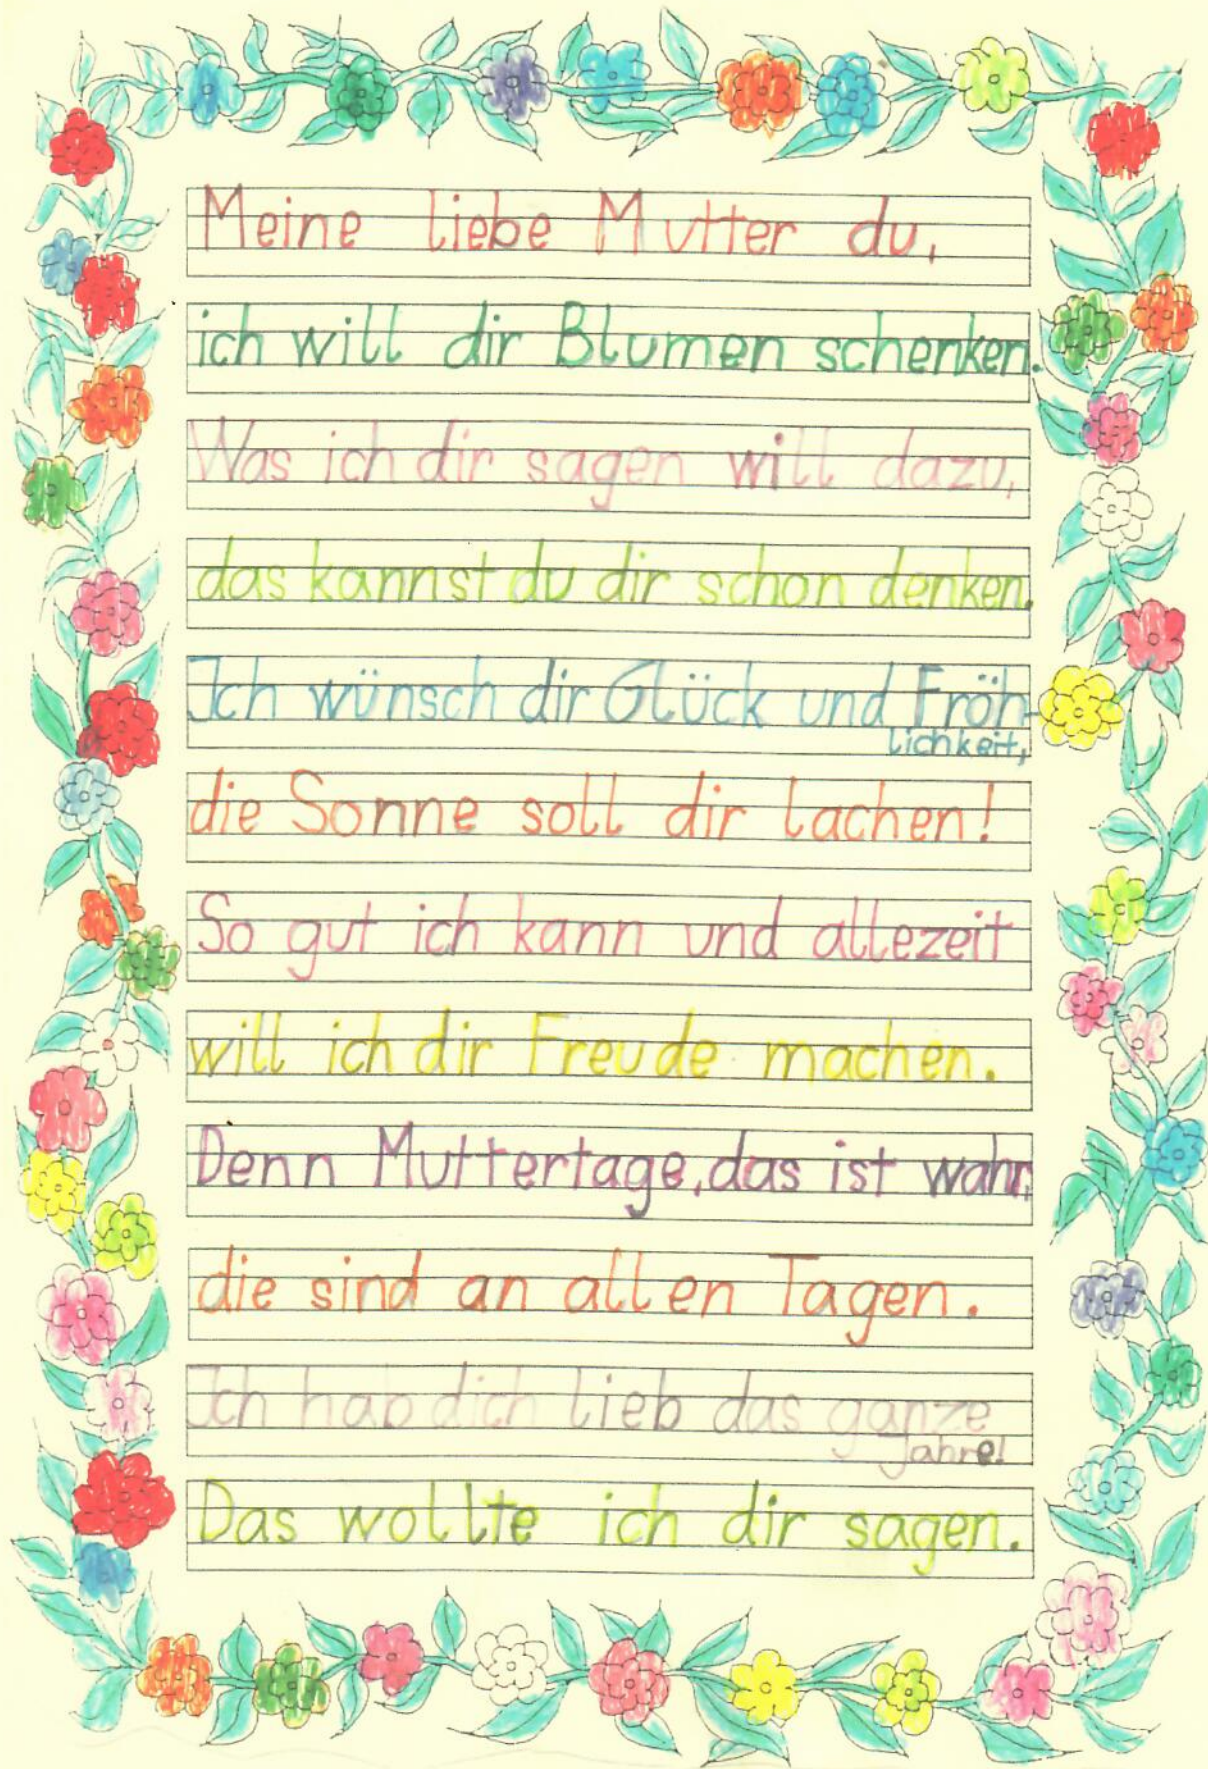 Meine liebe Mutter du,
ich will dir Blumen schenken.
Was ich dir sagen will dazu,
das kannst du dir schon denken.
Ich wünsch dir Glück und Fröh-
lichkeit,
die Sonne soll dir lachen!
So gut ich kann und allezeit
will ich dir Freude machen.
Denn Muttertage, das ist wahr,
die sind an allen Tagen.
Ich hab dich lieb das ganze
Jahre!
Das wollte ich dir sagen.